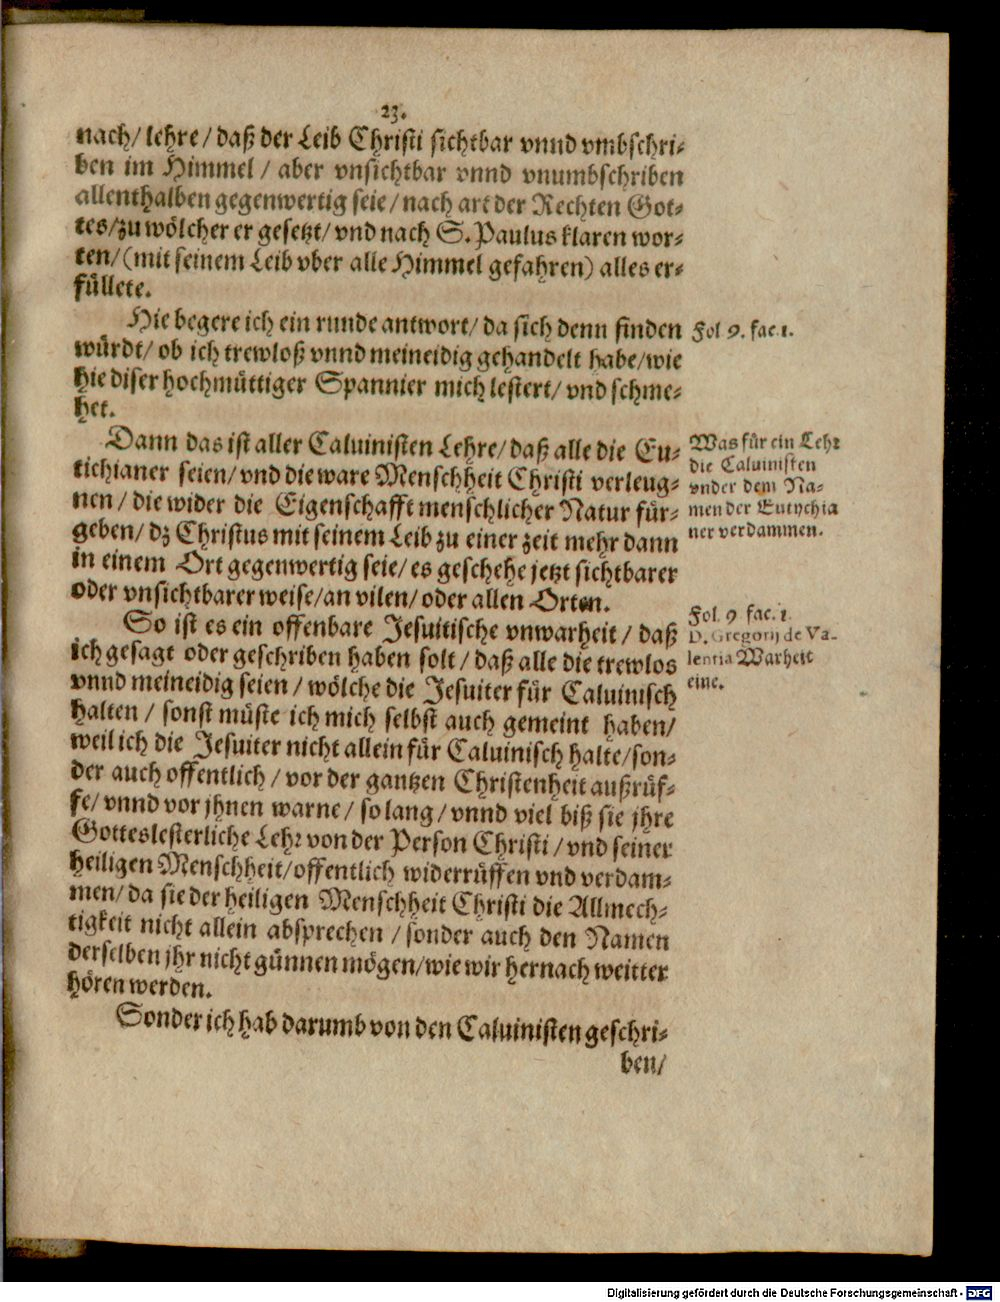 23.
nach/ lehre/ daß der Leib Christi sichtbar vnnd vmbschri-
ben im Himmel/ aber vnsichtbar vnnd vnumbschriben
allenthalben gegenwertig seie/ nach art der Rechten Got-
tes/ zu wölcher er gesetzt/ vnd nach S. Paulus klaren wor-
ten/ (mit seinem Leib vber alle Himmel gefahren) alles er-
füllete.
Hie begere ich ein runde antwort/ da sich denn finden
würdt/ ob ich trewloß vnnd meineidig gehandelt habe/ wie
hie diser hochmüttiger Spannier mich lestert/ vnd schme-
het.
Fol 9. fac. 1.
Dann das ist aller Caluinisten Lehre/ daß alle die Eu-
tichianer seien/ vnd die ware Menschheit Christi verleug-
nen/ die wider die Eigenschafft menschlicher Natur für-
geben/ dz Christus mit seinem Leib zu einer zeit mehr dann
in einem Ort gegenwertig seie/ es geschehe jetzt sichtbarer
oder vnsichtbarer weise/ an vilen/ oder allen Orten.
Was für ein Lehr
die Caluinisten
vnder dem Na-
men der Eutychia
ner verdammen.
So ist es ein offenbare Jesuitische vnwarheit/ daß
ich gesagt oder geschriben haben solt/ daß alle die trewlos
vnnd meineidig seien/ wölche die Jesuiter für Caluinisch
halten/ sonst müste ich mich selbst auch gemeint haben/
weil ich die Jesuiter nicht allein für Caluinisch halte/ son-
der auch offentlich/ vor der gantzen Christenheit außrüf-
fe/ vnnd vor jhnen warne/ so lang/ vnnd viel biß sie jhre
Gotteslesterliche Lehr von der Person Christi/ vnd seiner
heiligen Menschheit/ offentlich widerrüffen vnd verdam-
men/ da sie der heiligen Menschheit Christi die Allmech-
tigkeit nicht allein absprechen/ sonder auch den Namen
derselben jhr nicht günnen mögen/ wie wir hernach weitter
hören werden.
Fol. 9 fac. 1.
D. Gregorij de Va-
lentia Warheit
eine.
Sonder ich hab darumb von den Caluinisten geschri-
ben/
Digitalisierung gefördert durch die Deutsche Forschungsgemeinschaft - DFG